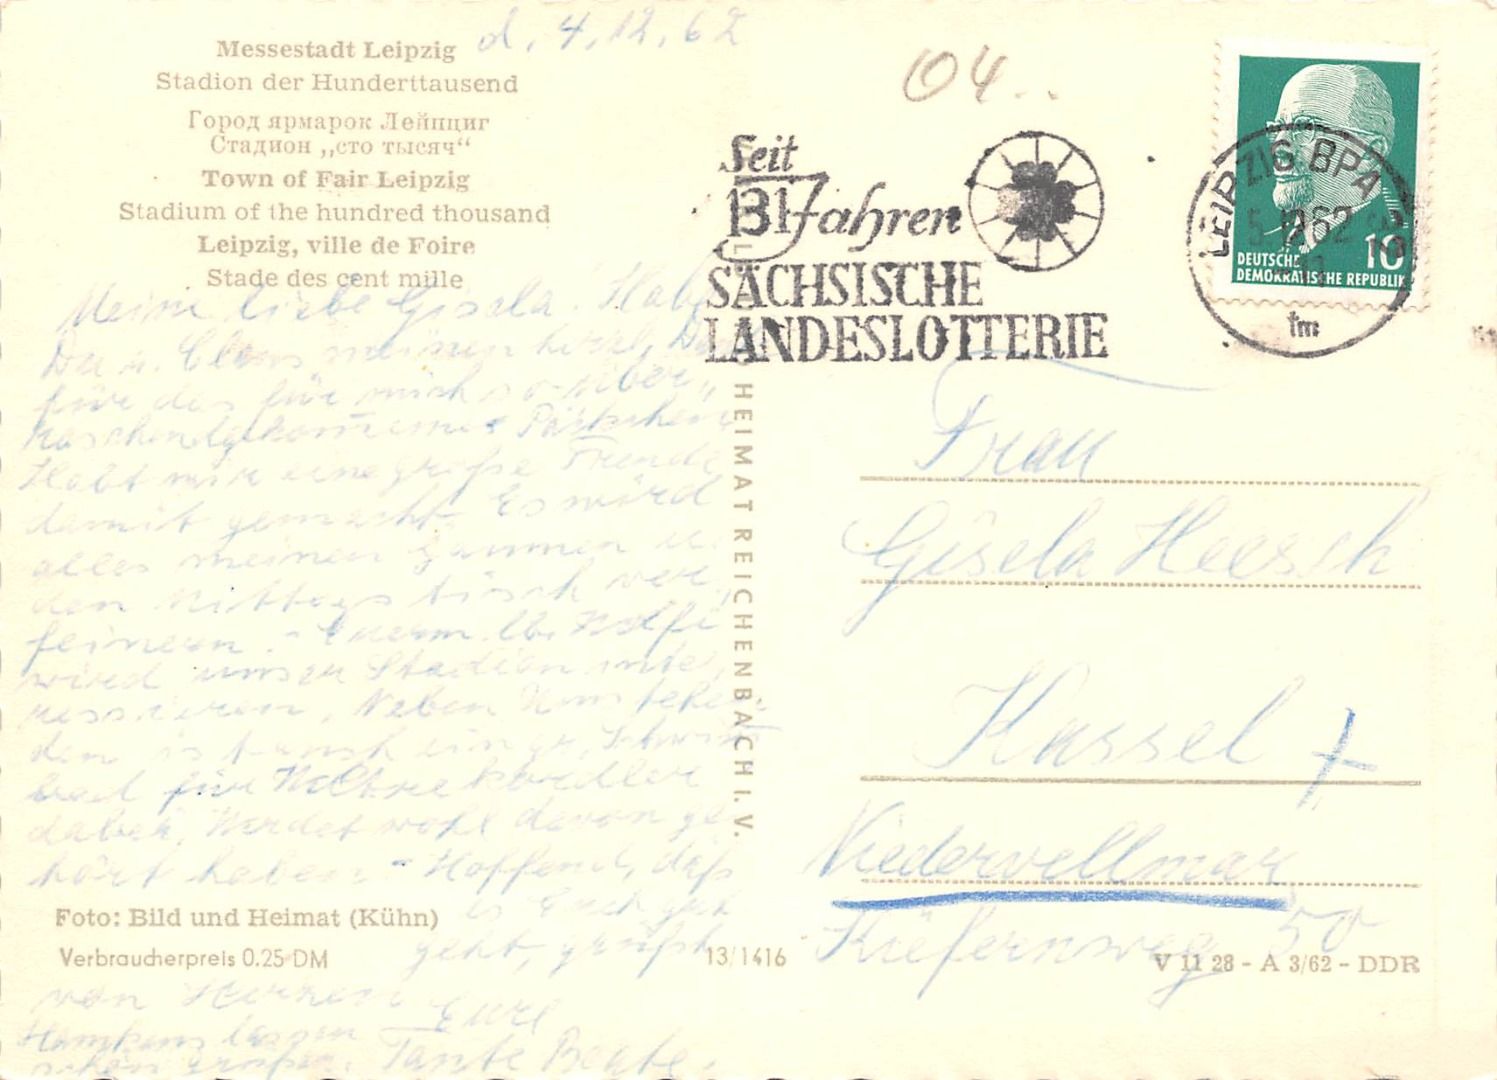 d. 4.12.62
Messestadt Leipzig
Stadion der Hunderttausend
Город ярмарок Лейпциг
Стадион „сто тысяч“
Town of Fair Leipzig
Stadium of the hundred thousand
Leipzig, ville de Foire
Stade des cent mille
Meine liebe Gisela. Habt
Du u. Claus meinen herzl. Dank
für das für mich so über„
raschend gekommene Päckchen.
Habt mir eine große Freude
damit gemacht. Es wird
alles meinen Gaumen u.
den Mittagstisch ver„
feinern. -
wird unser Stadion inte„
ressieren. Neben Umstehen„
den ist auch ein
bad für Weltrekordler
dabei, Werdet wohl davon ge„
hört haben - Hoffend, daß
es Euch gut
geht, grüßt
von Herzen
Eure
Tante Beate.
lassen
schön grüßen.
Foto: Bild und Heimat (Kühn)
Verbraucherpreis 0.25 DM
HEIMAT REICHENBACH I. V.
13/1416
04..
Seit
131 Jahren
SÄCHSISCHE
LANDESLOTTERIE
LEIPZIG BPA 32
5.12.62
tm
10
DEUTSCHE
DEMOKRATISCHE REPUBLIK
Frau
Gisela Heersch
Kassel
Niedervellmar
Kiefernweg 50
V 11 28 - A 3/62 - DDR